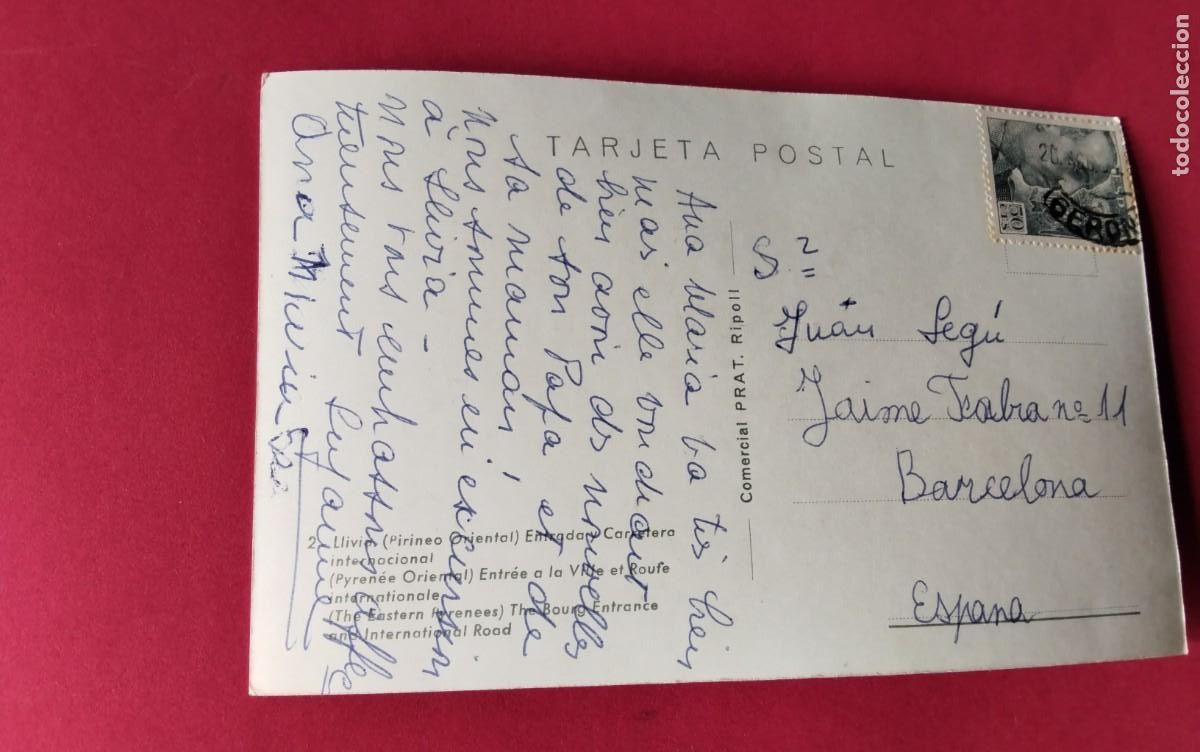 TARJETA POSTAL
Ana Maria va très bien
mais elle voudrait
bien avoir des nouvelles
de ton Papa et de
ta maman!
Nous sommes en excursion
à Llivia -
Nous vous embrassons affec
tueusement
Ana Maria
2 Llivia (Pirineo Oriental) Entrada Carretera
internacional
(Pyrenée Oriental) Entrée a la Ville et Route
internationale
(The Eastern Pyrenees) The Bourg Entrance
and International Road
Comercial PRAT. Ripoll
Juán Segú
Jaime nº 11
Barcelona
Espana
50 CTS
20
GERONA
todocoleccion